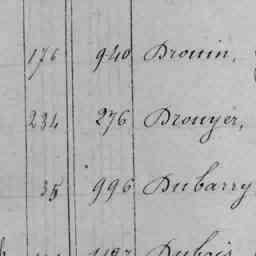 176 940 Drouin,
234 276 Drouyer,
35 996 Dubarry
1197 Dubois